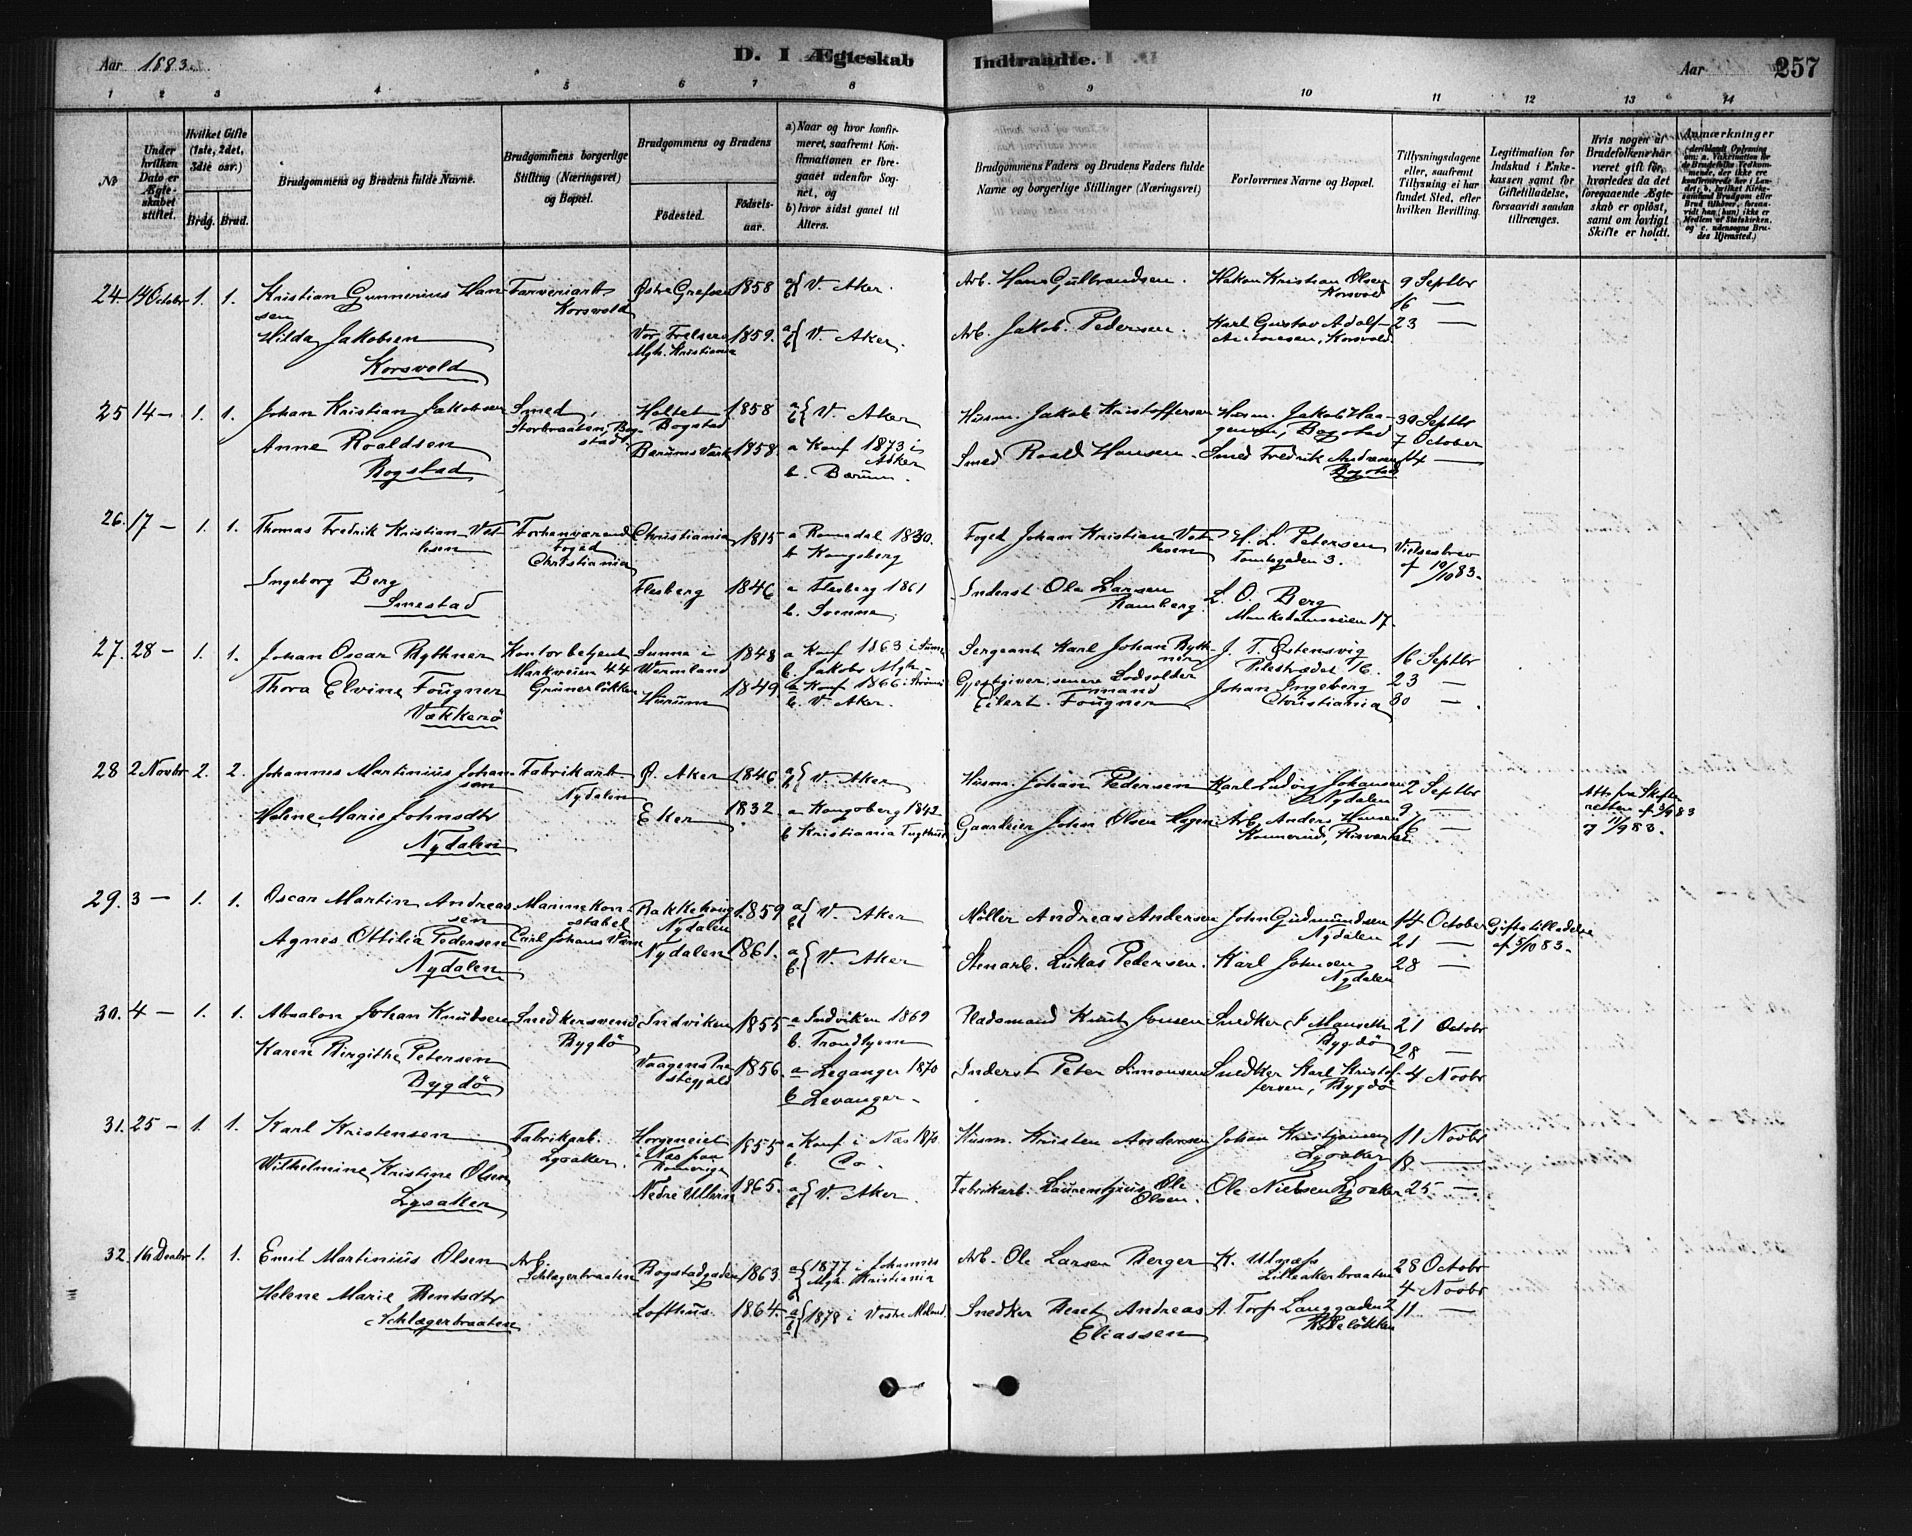 Aar 1883.
D. I Ægteskab Indtraadte.
Aar 257
1 2 3 4 5 6 7 8 9 10 11 12 13 14
No
Under hvilken Dato er Ægteskabet stiftet.
Hvilket Gifte (1ste, 2det, 3die osv.)
Brdg. Brud.
Brudgommens og Brudens fulde Navne.
Brudgommens borgerlige Stilling (Næringsvei) og Bopæl.
Brudgommens og Brudens
Födested.
Födselsaar.
a) Naar og hvor konfirmeret, saafremt Konfirmationen er foregaaet udenfor Sognet, og
b) hvor sidst gaaet til Alters.
Brudgommens Faders og Brudens Faders fulde Navne og borgerlige Stillinger (Næringsvei)
Forlovernes Navne og Bopæl.
Tillysningsdagene eller, saafremt Tillysning ei har fundet Sted, efter hvilken Bevilling.
Legitimation for Indskud i Enkekassen samt for Giftetilladelse, forsaavidt saadan tiltrænges.
Hvis nogen af Brudefolkene har været gift för, hvorledes da det foregaaende Ægteskab er oplöst, samt om lovligt Skifte er holdt.
Anmærkninger
24 14 Octobr 1. 1. Kristian Gunnerius Hansen Farveriarb Korsvold Østre Grefsen 1858 a b V. Aker. Arb. Hans Gulbrandsen. Hakon Kristian Olsen Korsvold 9 Septbr
16 —
Hilda Jakobsen Vor Frelsers Mgh. Kristiania 1859. a b V. Aker. Arb. Jakob Pedersen. Karl Gustav Adolf Antonesen, Korsvold 23 —
Korsvold
25 14 — 1. 1. Johan Kristian Jakobsen Smed, Storbraaten, Bogstad Holtet Bogstad 1858 a b V. Aker Husm. Jakob Kristoffersen Husm. Jakob Haagensen, Bogstad 30 Septbr
7 October
Anne Roaldsen Bærums Værk 1858. a Konf 1873 i Asker b. Bærum. Smed Roald Hansen. Smed Fredrik Andersen Bogstad 14 —
Bogstad
26. 17 — 1. 1. Thomas Fredrik Kristian Vethsen Forhenværende Foged Christiania Christiania 1815 a Romsdal 1830. b Kongsberg Foged Johan Kristian Vethsen H. L. Petersen Tomtegaden 3. Vielsesbrev af 10/10 83.
Ingeborg Berg Flesberg 1846 a Flesberg 1861 b. Svenne. Inderst Ole Larsen Ramberg L. O. Berg Munkedamsveien 17.
Smestad
27. 28 — 1. 1. Johan Oscar Rythner Kontorbetjent Markveien 44 Grünerløkken Sunne i Wermland 1848 a Konf 1863 i Sunne b. Jakobs Mgh. Sergeant Karl Johan Rythner J. T. Østensvig Pilestrædet 16. 16 Septbr
23 —
Thora Elvine Fougner Hurum 1849 a Konf 1866 b. V. Aker. Gjestgiver, senere Lodsoldermand Eilert Fougner Johan Ingeberg Christiania 30 —
Vækkerø
28 2 Novbr 2. 2. Johannes Martinius Johansen Fabrikarb Nydalen Ø. Aker 1846 a b V. Aker Husm. Johan Pedersen Karl Ludvig Johansen Nydalen 2 Septbr
9 — Att. fra Skifteretten af 3/9 83 og 11/9 83.
Helene Marie Johnsdtr Eker 1832 a Kongsberg 1842 b Kristiania Tugthus Gaardeier John Olsen Hagen Arb. Anders Hansen 16 —
Nydalen
29. 3 — 1. 1. Oscar Martin Andreassen Marinekonstabel Carl Johans Værn Bakkehaug Nydalen 1859 a b V. Aker Møller Andreas Andersen John Gudmundsen Nydalen 14 October
21 — Giftetilladelse af 5/10 83.
Agnes Ottilia Pedersen Nydalen 1861. a b V. Aker Stenarb. Lukas Pedersen. Karl Johnsen Nydalen 28 —
Nydalen
30. 4 — 1. 1. Absalon Johan Knudsen Snedkersvend Bygdø Indviken 1855 a Indviken 1869 b. Trondhjem Pladsmand Knut Jonsen Snedker Bygdø 21 Octobr
28 —
Karen Birgithe Petersen Vaagens Præstegjeld 1856. a Leganger 1870 b Levanger. Inderst Peter Simonsen Snedker Karl Kristoffersen, Bygdø 4 Novbr
Bygdø
31. 25 — 1. 1. Karl Kristensen Fabrikarb. Lysaker. Horgeneiet i Næs paa Romerige 1855 a Konf i Næs 1870. b. Do. Husm. Kristen Andersen Johan Kristjansen Lysaker 11 Novbr
18 —
Wilhelmine Kristine Olsen Nedre Ullern 1865. a b V. Aker. Fabrikarb. Laurentzius Ole Olsen. Ole Nielsen Lysaker 25 —
Lysaker
32. 16 Decbr 1. 1. Emil Martinius Olsen Arb. Schlagerbraaten Bogstadgaden 1863. a 1877 i Johannis Mgh. Kristiania Arb. Ole Larsen Berger K. Ulnæss Lilleakerbraaten 28 Octobr
4 Novbr
Helene Marie Berntsdtr Lofthus 1864. a b 1878 i Vestre Moland Snedker Bernt Andreas Eliassen A. Torp Langgaden 2 Pipeløkken 11 —
Schlagerbraaten